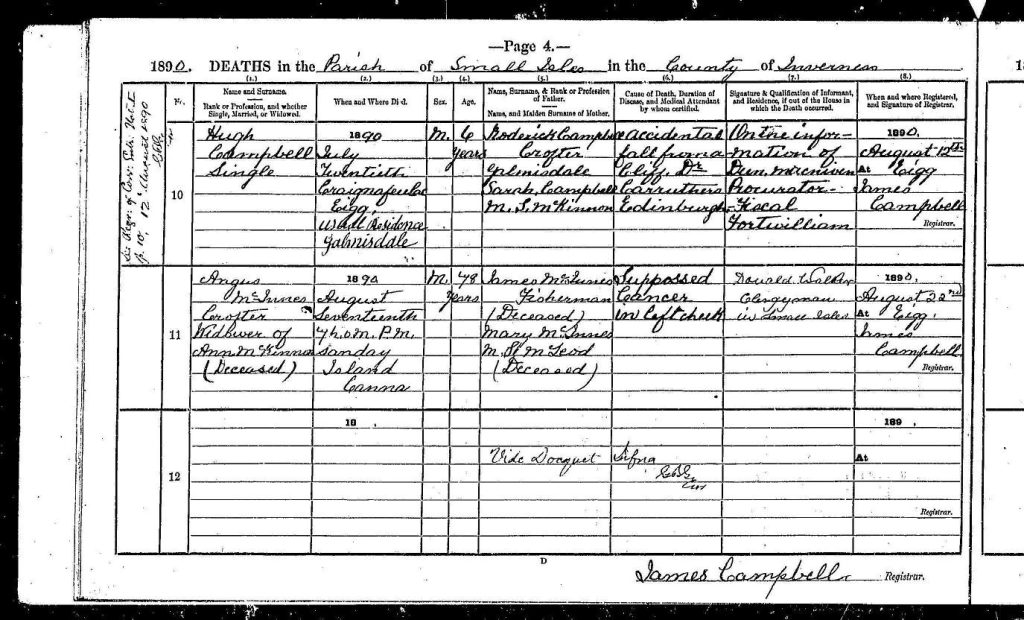 —Page 4.—
1890. DEATHS in the Parish of Small Isles in the County of Inverness
(1.) (2.) (3.) (4.) (5.) (6.) (7.) (8.)
No. Name and Surname. Rank or Profession, and whether Single, Married, or Widowed.
When and Where Died.
Sex.
Age.
Name, Surname, & Rank or Profession of Father. Name, and Maiden Surname of Mother.
Cause of Death, Duration of Disease, and Medical Attendant by whom certified.
Signature & Qualification of Informant, and Residence, if out of the House in which the Death occurred.
When and where Registered, and Signature of Registrar.
10
Hugh
Campbell
Single
1890
July
Twentieth
Eigg,
usual Residence
M.
6
years
Roderick Campbell
Crofter
Sarah, Campbell
M. S. McKinnon
accidental
fall from a
Cliff. Dr
Carruthers
Edinburgh
On the infor-
mation of
Dun. macniven
Procurator-
-Fiscal
Fortwilliam
1890,
August 12th
At Eigg
James
Campbell
Registrar.
11
Angus
McInnes
Crofter
Widower of
Ann McKinnon
(Deceased)
1890
August
Seventeenth
7h. 0m. P.M.
Sanday
Island
Canna
M.
78
Years
James McInnes
Fisherman
(Deceased)
Mary McInnes
M.S. McLeod
(Deceased)
Suppossed
Cancer
in left cheek
Donald
Clergyman
in Small Isles
1890.
August 22nd
At Eigg.
James
Campbell
Registrar.
12
18
Vide Docquet
189 .
At
Registrar.
D
James Campbell. Registrar.